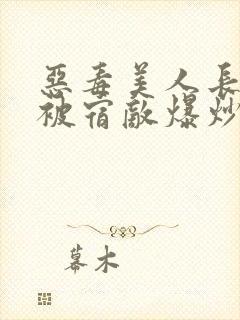 惡毒美人長
被宿敵爆炒
幕木